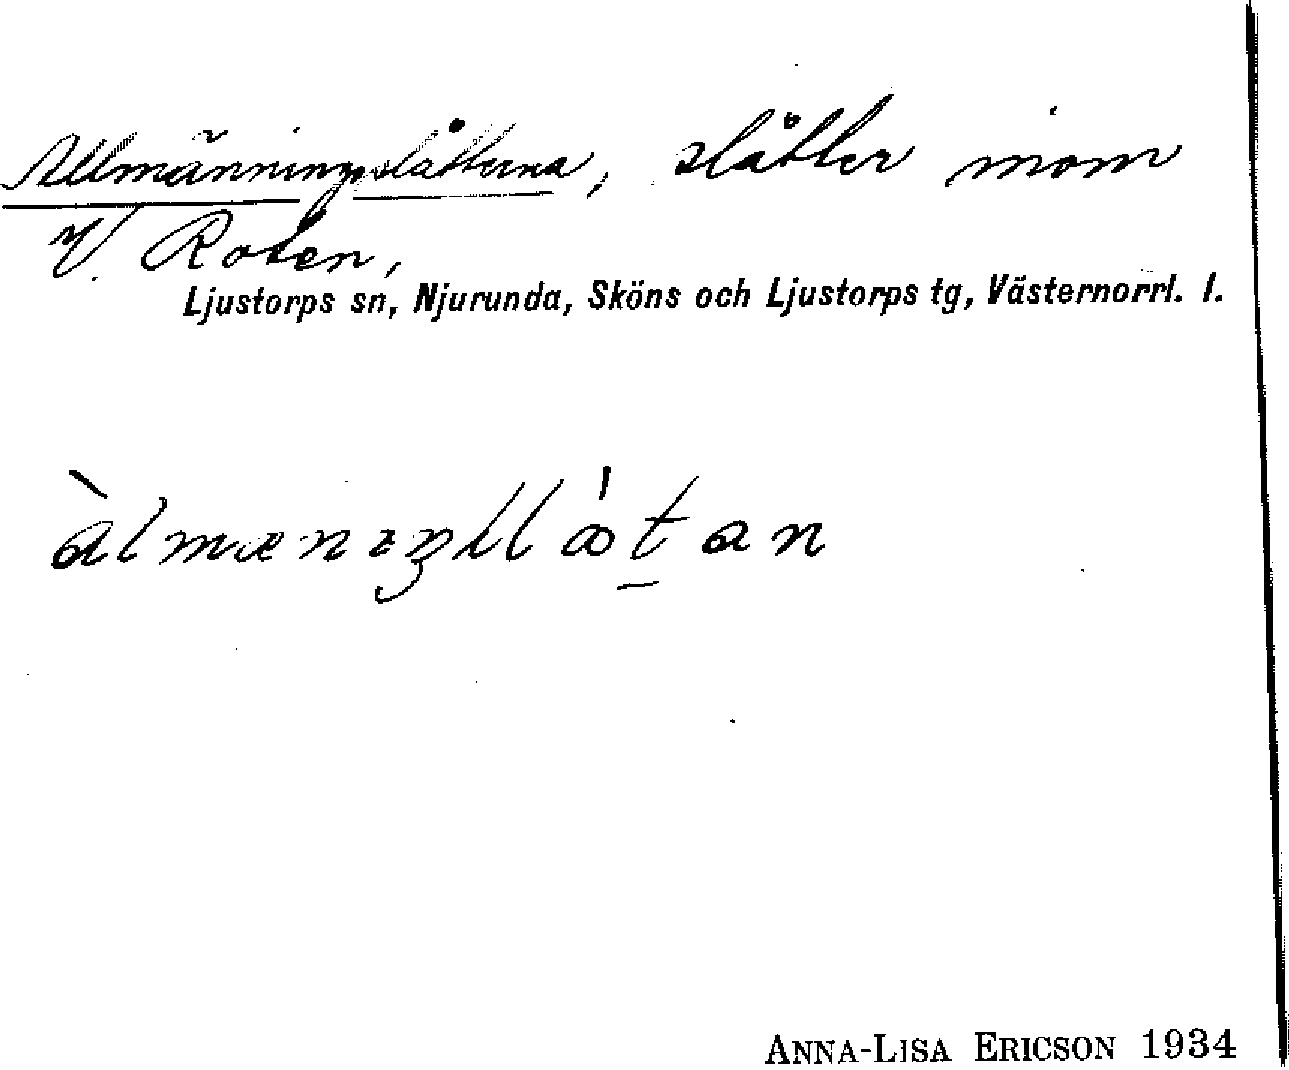 Allmänningsslåtterna, slåtter inom
V. Roten,
Ljustorps sn, Njurunda, Sköns och Ljustorps tg, Västernorrl. l.
ANNA-LISA ERICSON 1934